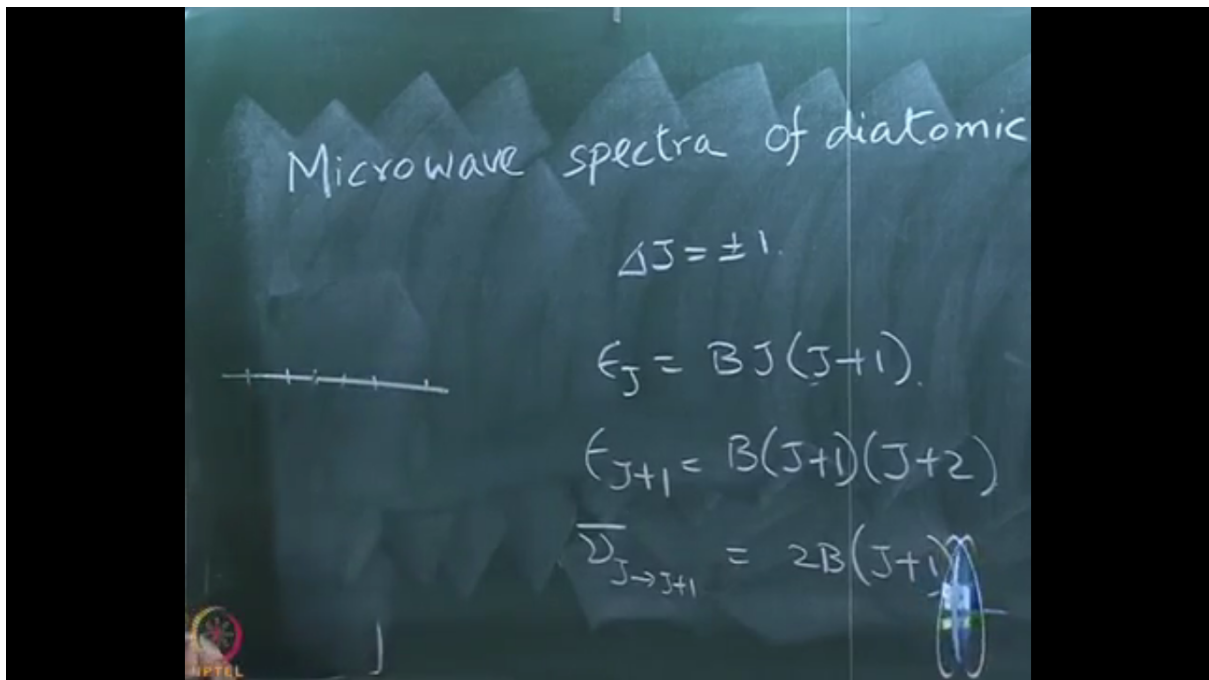 Microwave spectra of diatomic
ΔJ = ±1.
ϵ_J = BJ(J+1).
ϵ_{J+1} = B(J+1)(J+2)
ν̅_{J→J+1} = 2B(J+1)
NPTEL